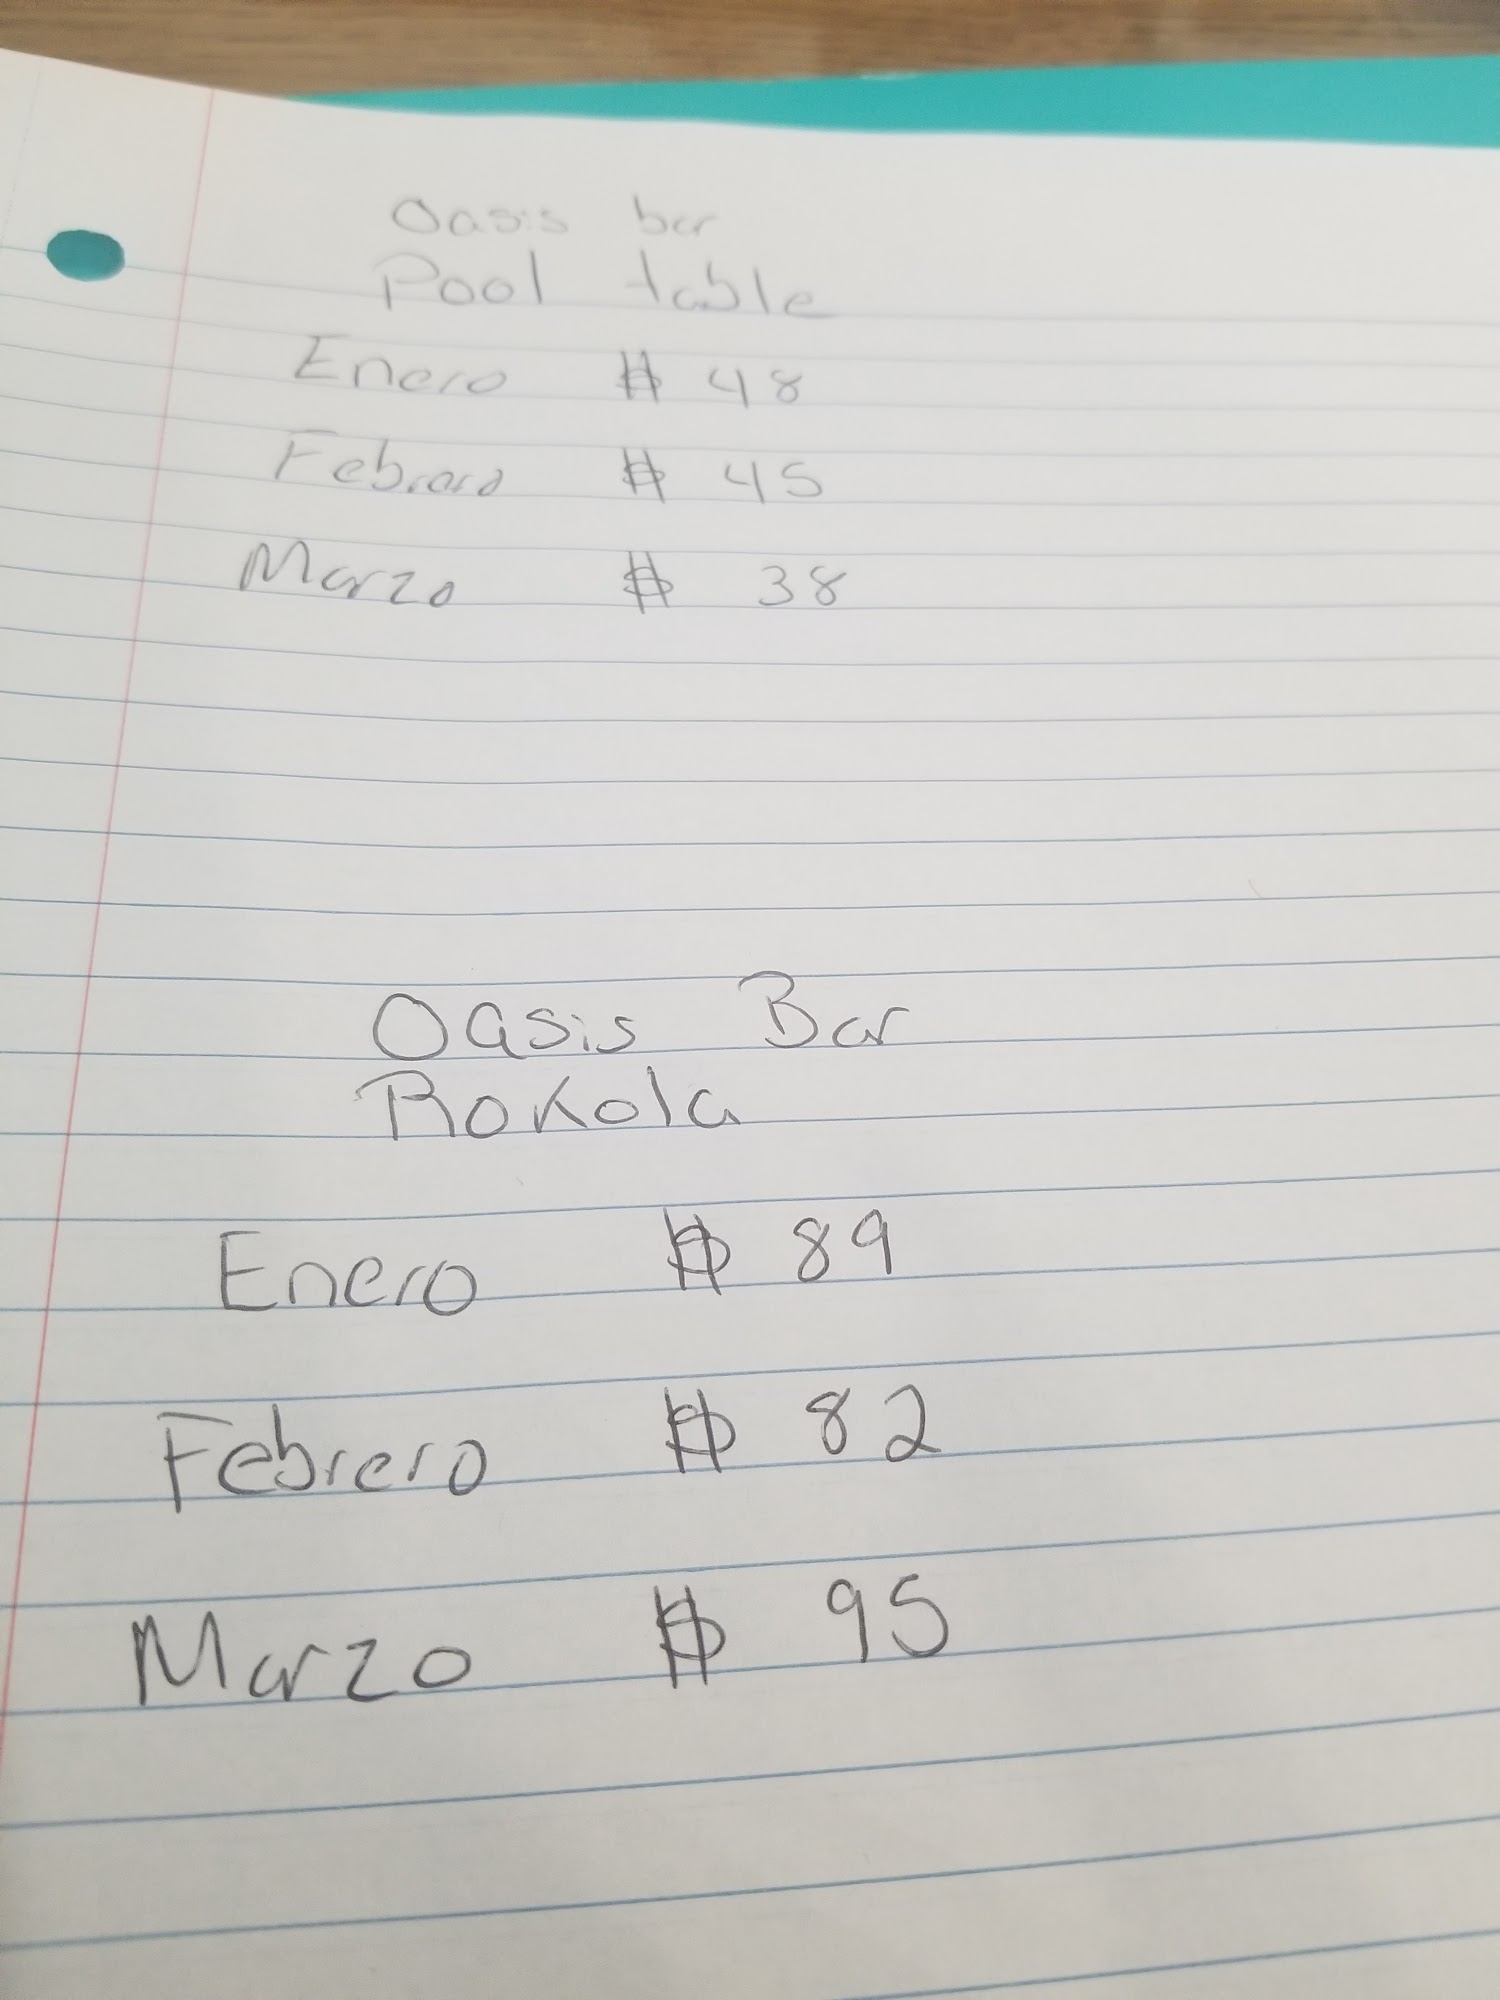 Oasis bar
Pool table
Enero $ 48
Febrero $ 45
Marzo $ 38
Oasis Bar
Rokola
Enero $ 89
Febrero $ 82
Marzo $ 95